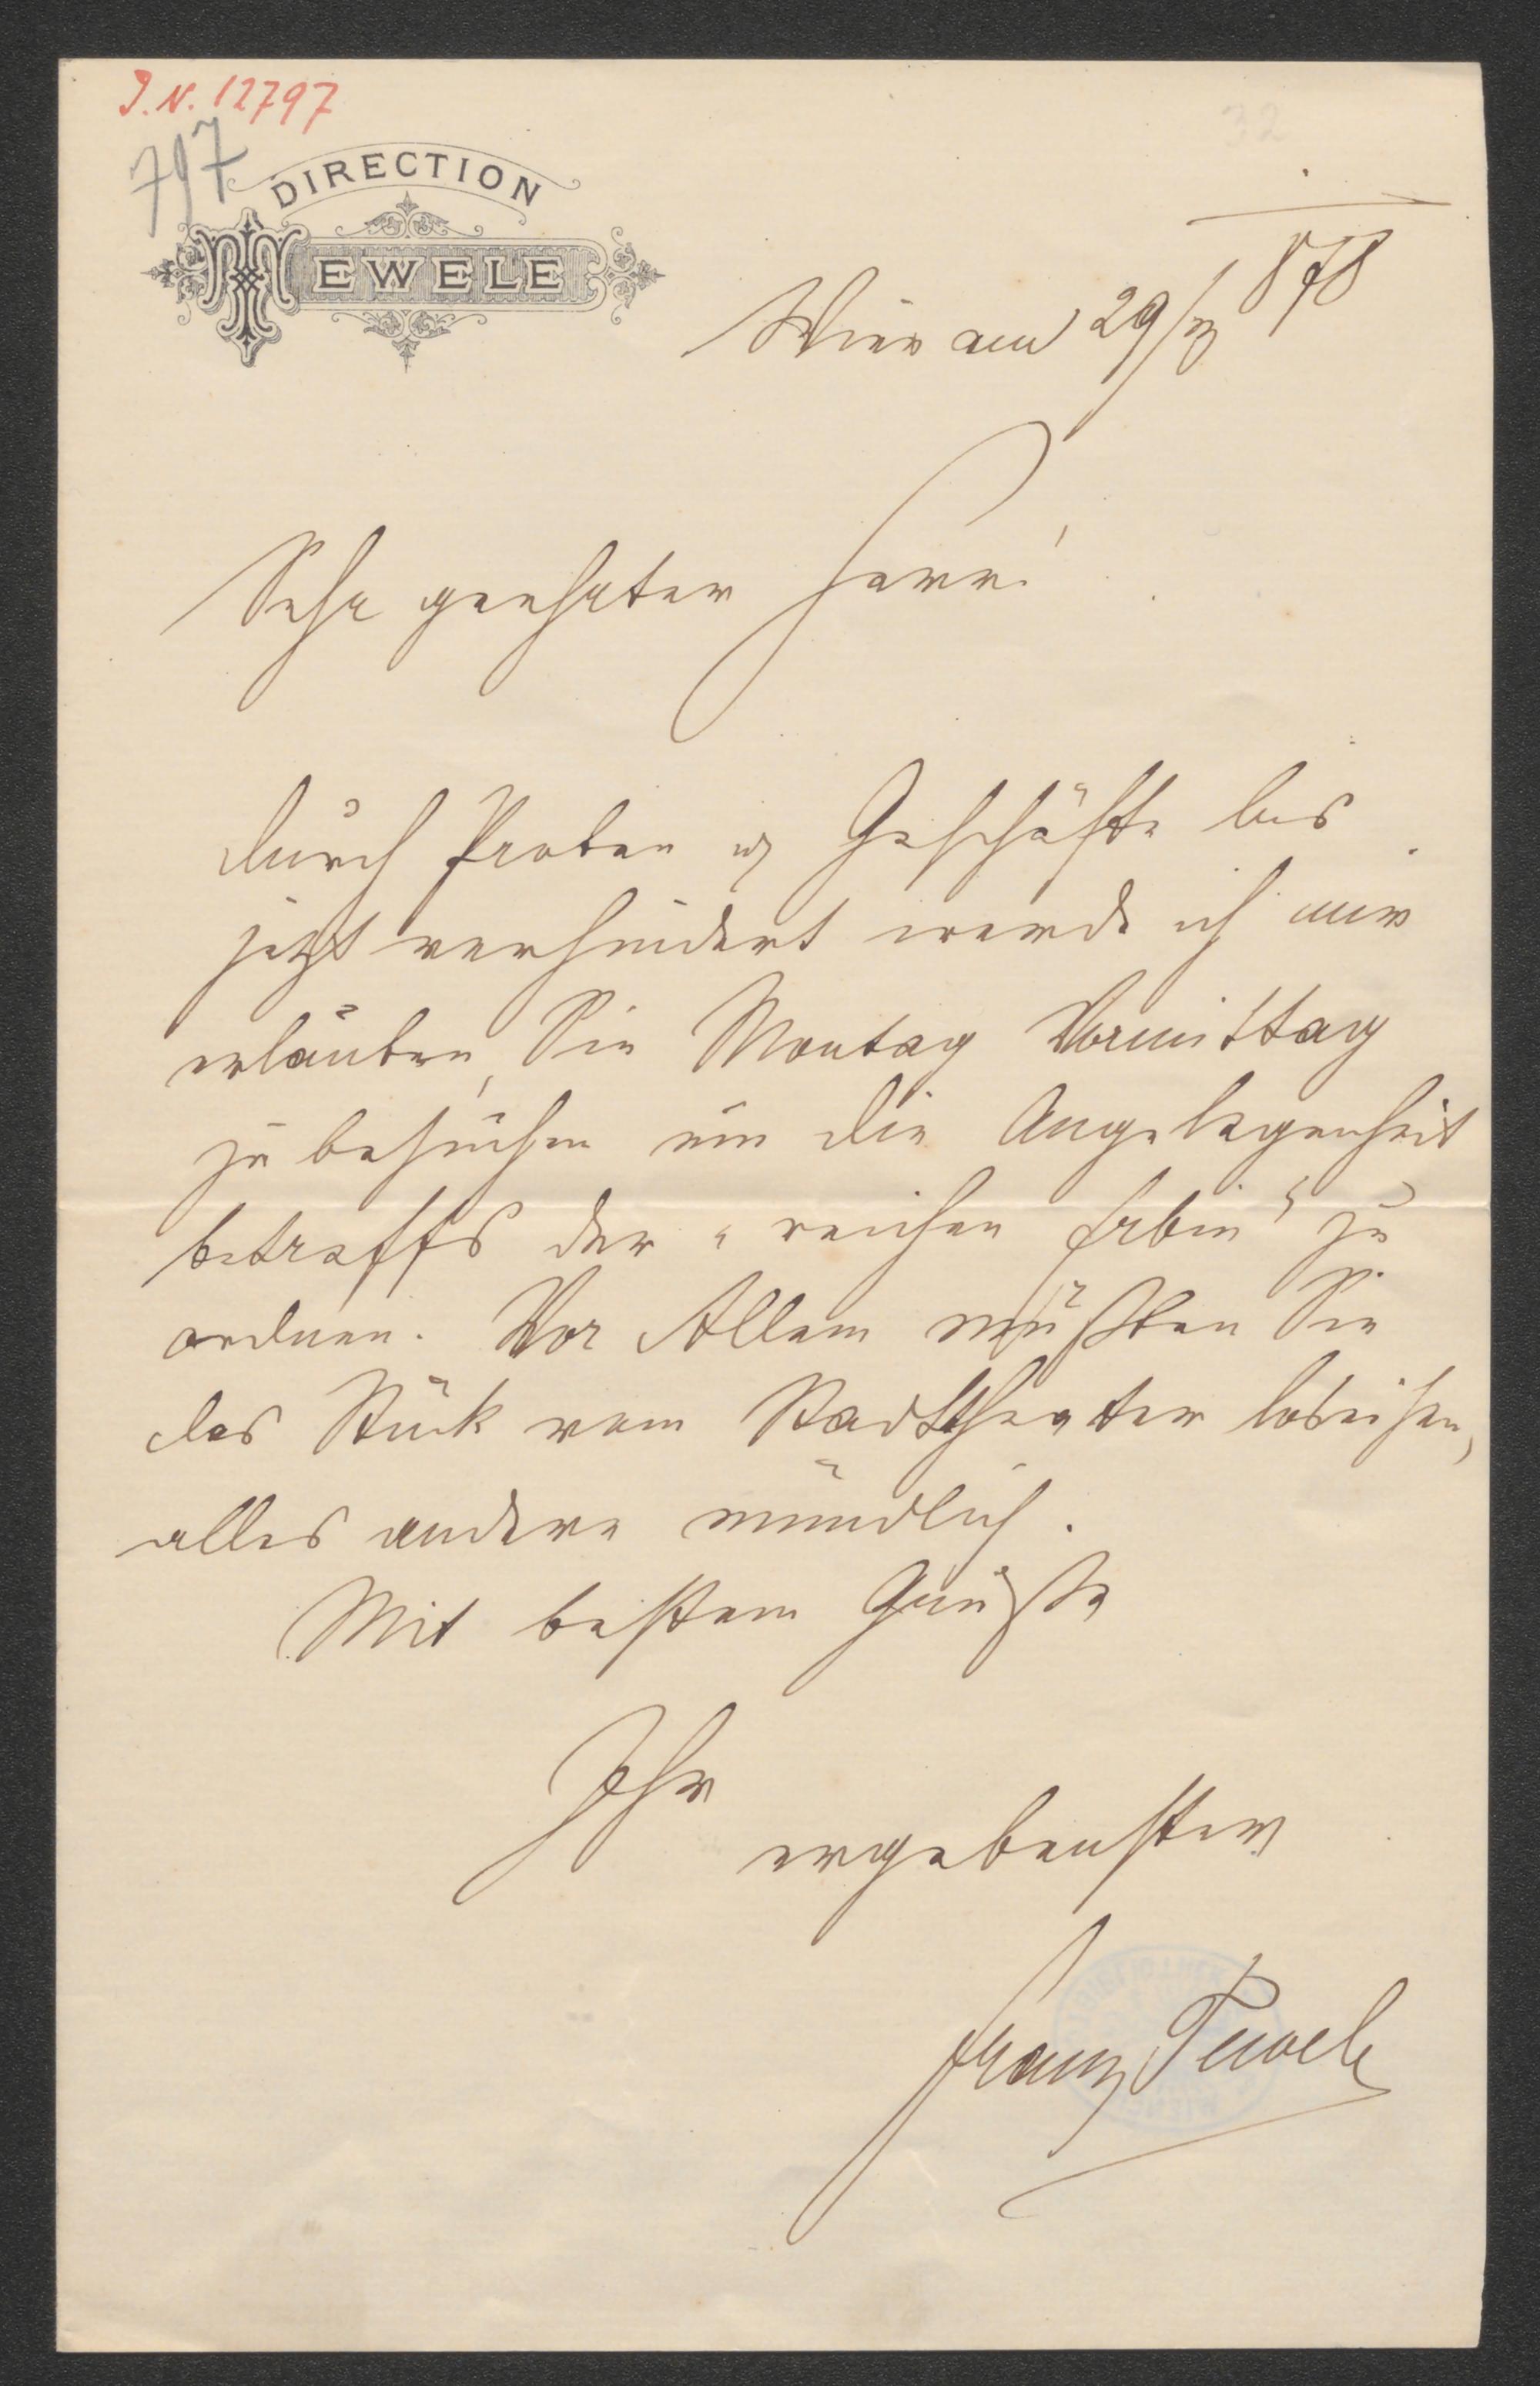 J.N. 12797
797
32
DIRECTION
TEWELE
Wien am 29/3 878
Sehr geehrter Herr!
durch Proben u Geschäfte bis
jetzt verhindert werde ich mir
erlauben, Sie Montag Vormittag
zu besuchen um die Angelegenheit
betreffs der "reichen Erbin" zu
ordnen. Vor Allem müßten Sie
das Stück vom Stadttheater loseisen,
alles andere mündlich.
Mit bestem Gruße
Ihr
ergebenster
Franz Tewele